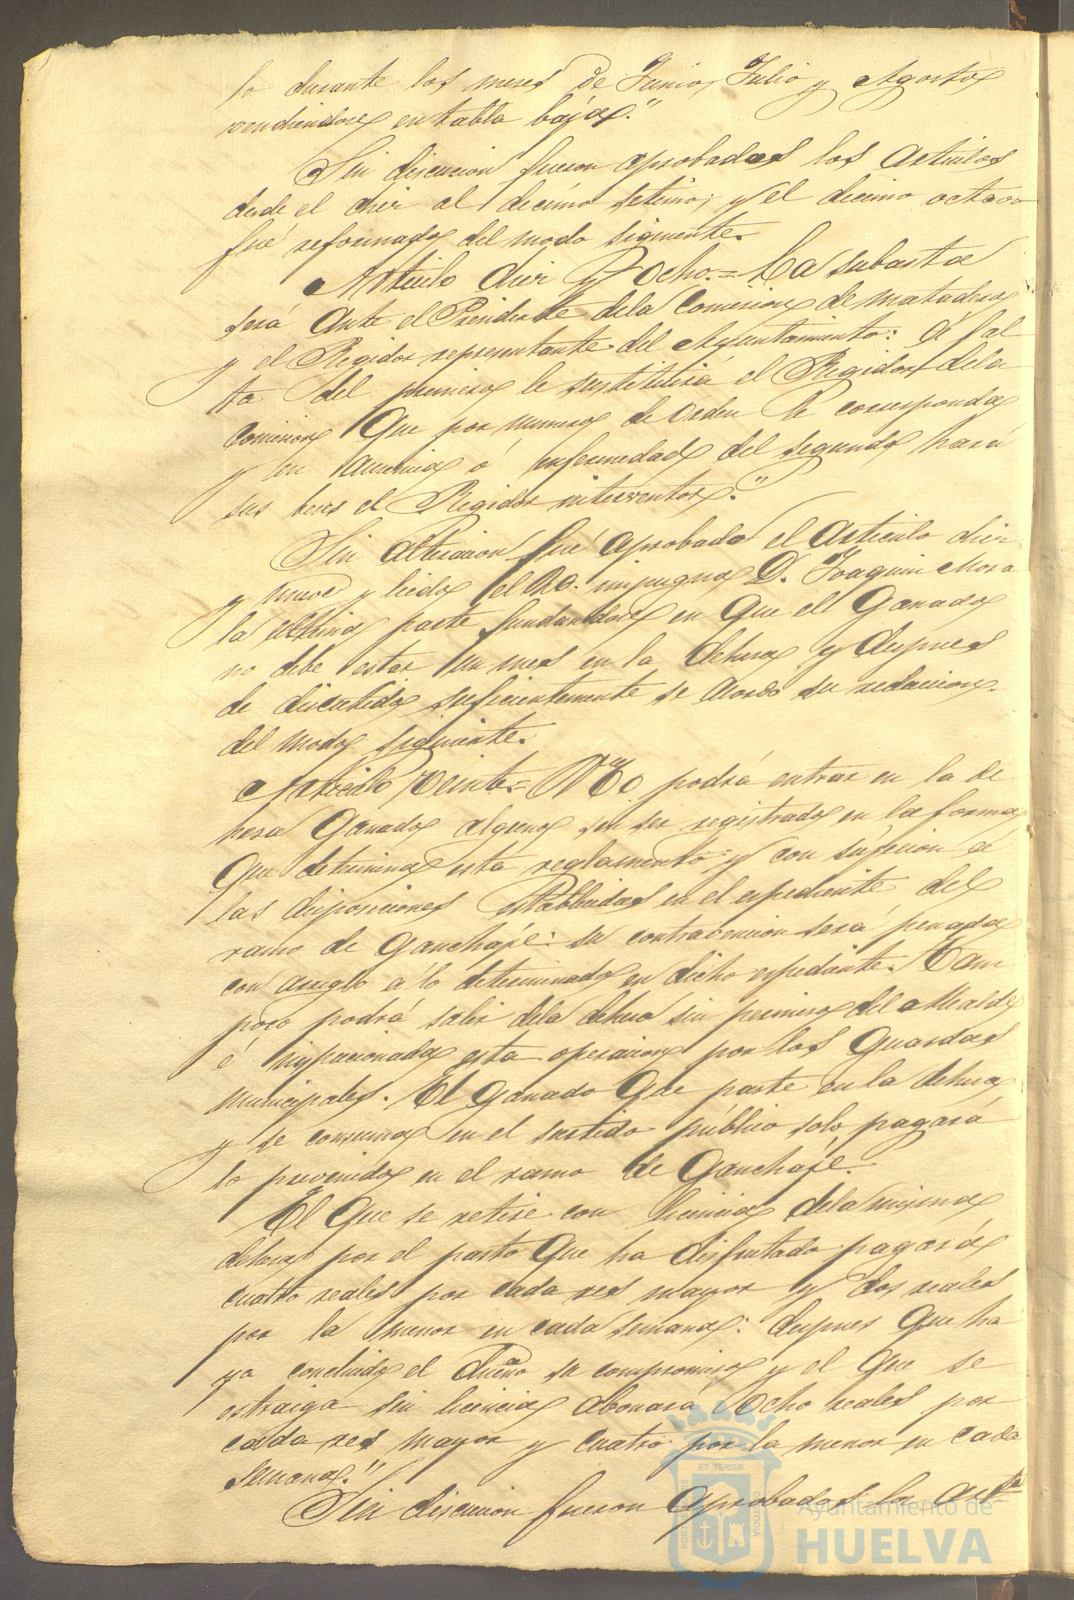 lo durante los meses de Junio, Julio y Agosto
vendiendose en tabla baja."
Sin discucion fueron aprobados los articulos
desde el diez al decimo setimo; y el decimo octavo
fué reformado del modo siguiente.
Articulo diez y ocho.= La subasta
será ante el Presidente dela Comision de matadero
y el Regidor representante del Ayuntamiento: á fal
ta del primero le sustituirá el Regidor dela
Comision que por numero de orden le corresponda
y en ausencia o enfermedad del segundo hará
sus beces el Regidor interventor."
Sin alteracion fué aprobado el articulo diez
y nueve y leido el 20. impugna D. Joaquin Mora
la ultima parte fundandose en que el Ganado
no debe estar un mes en la dehesa y despues
de discutido suficientemente se acordo su redaccion
del modo siguiente.
Articulo Veinte= No podrá entrar en la de
hesa Ganado alguno sin ser registrado en la forma
que determina esta reglamento y con sujecion a
las disposiciones establecidas en el espediente del
ramo de Ganchaje: su contravencion será penada
con arreglo á lo determinado en dicho espediente. Tam
poco podrá salir dela dehesa sin permiso del Alcalde
é inspecionada esta operacion por los Guardas
municipales. El ganado que paste en la dehesa
y se consuma en el surtido público solo pagará
lo prevenido en el ramo de Ganchaje.
El que se retire con licencia dela misma
dehesa por el pasto que ha disfrutado pagará
cuatro reales por cada res mayor y dos reales
por la menor en cada semana: despues que ha
ya concluido el dueño su compromiso y el que se
estraiga sin licencia abonará ocho reales por
cada res mayor y cuatro por la menor en cada
semana."
Sin discucion fueron aprobados los art^os
Ayuntamiento de
HUELVA